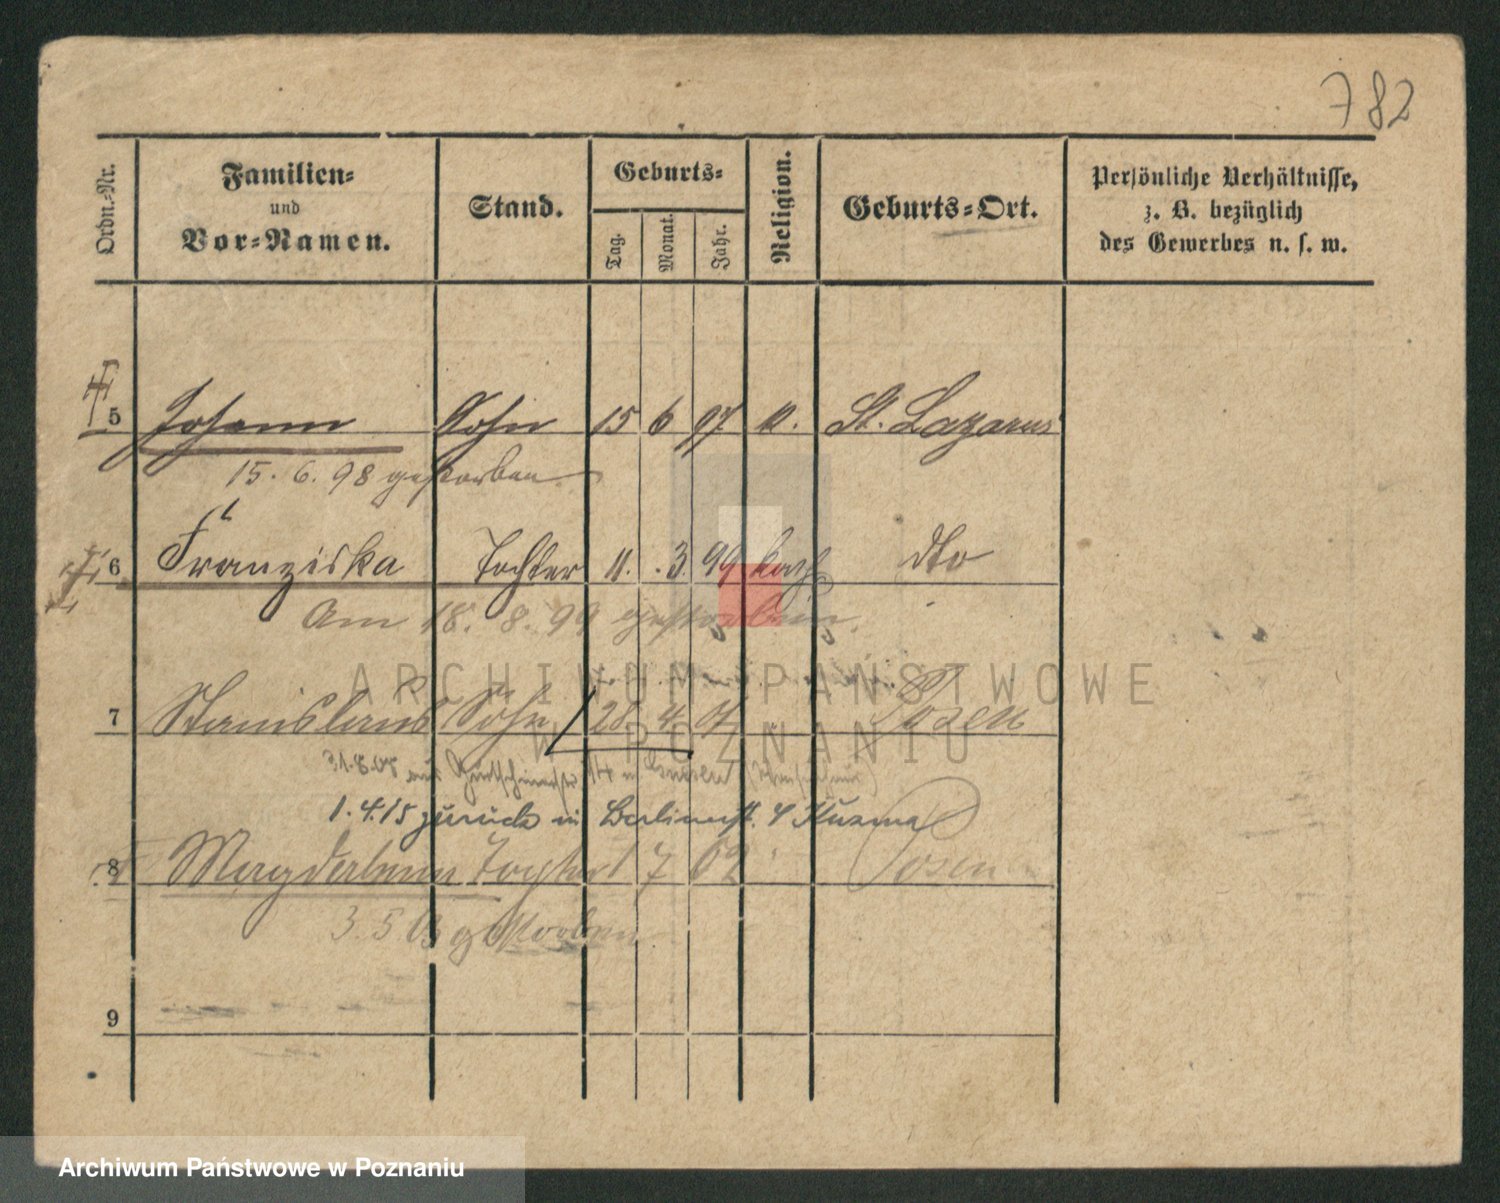 782
Ordn.-Nr. Familien- und Vor-Namen. Stand. Geburts- Tag. Monat. Jahr. Religion. Geburts-Ort. Persönliche Verhältnisse, z. B. bezüglich des Gewerbes u. s. w.
5 Johann Sohn 15 6 97. St. Lazarus
15. 6. 98 gestorben
6 Franziska Tochter 11. 3. 99 kath dto
Am 18. 8. 99 gestorben.
7 Stanislaus Sohn 28. 4. 01 Posen
1.4.15 zurück in Berlinerst. 4
8 Magdalena Tochter 1 7 02 Posen
3. 5. 03 gestorben
9
ARCHIWUM PAŃSTWOWE
W POZNANIU
Archiwum Państwowe w Poznaniu